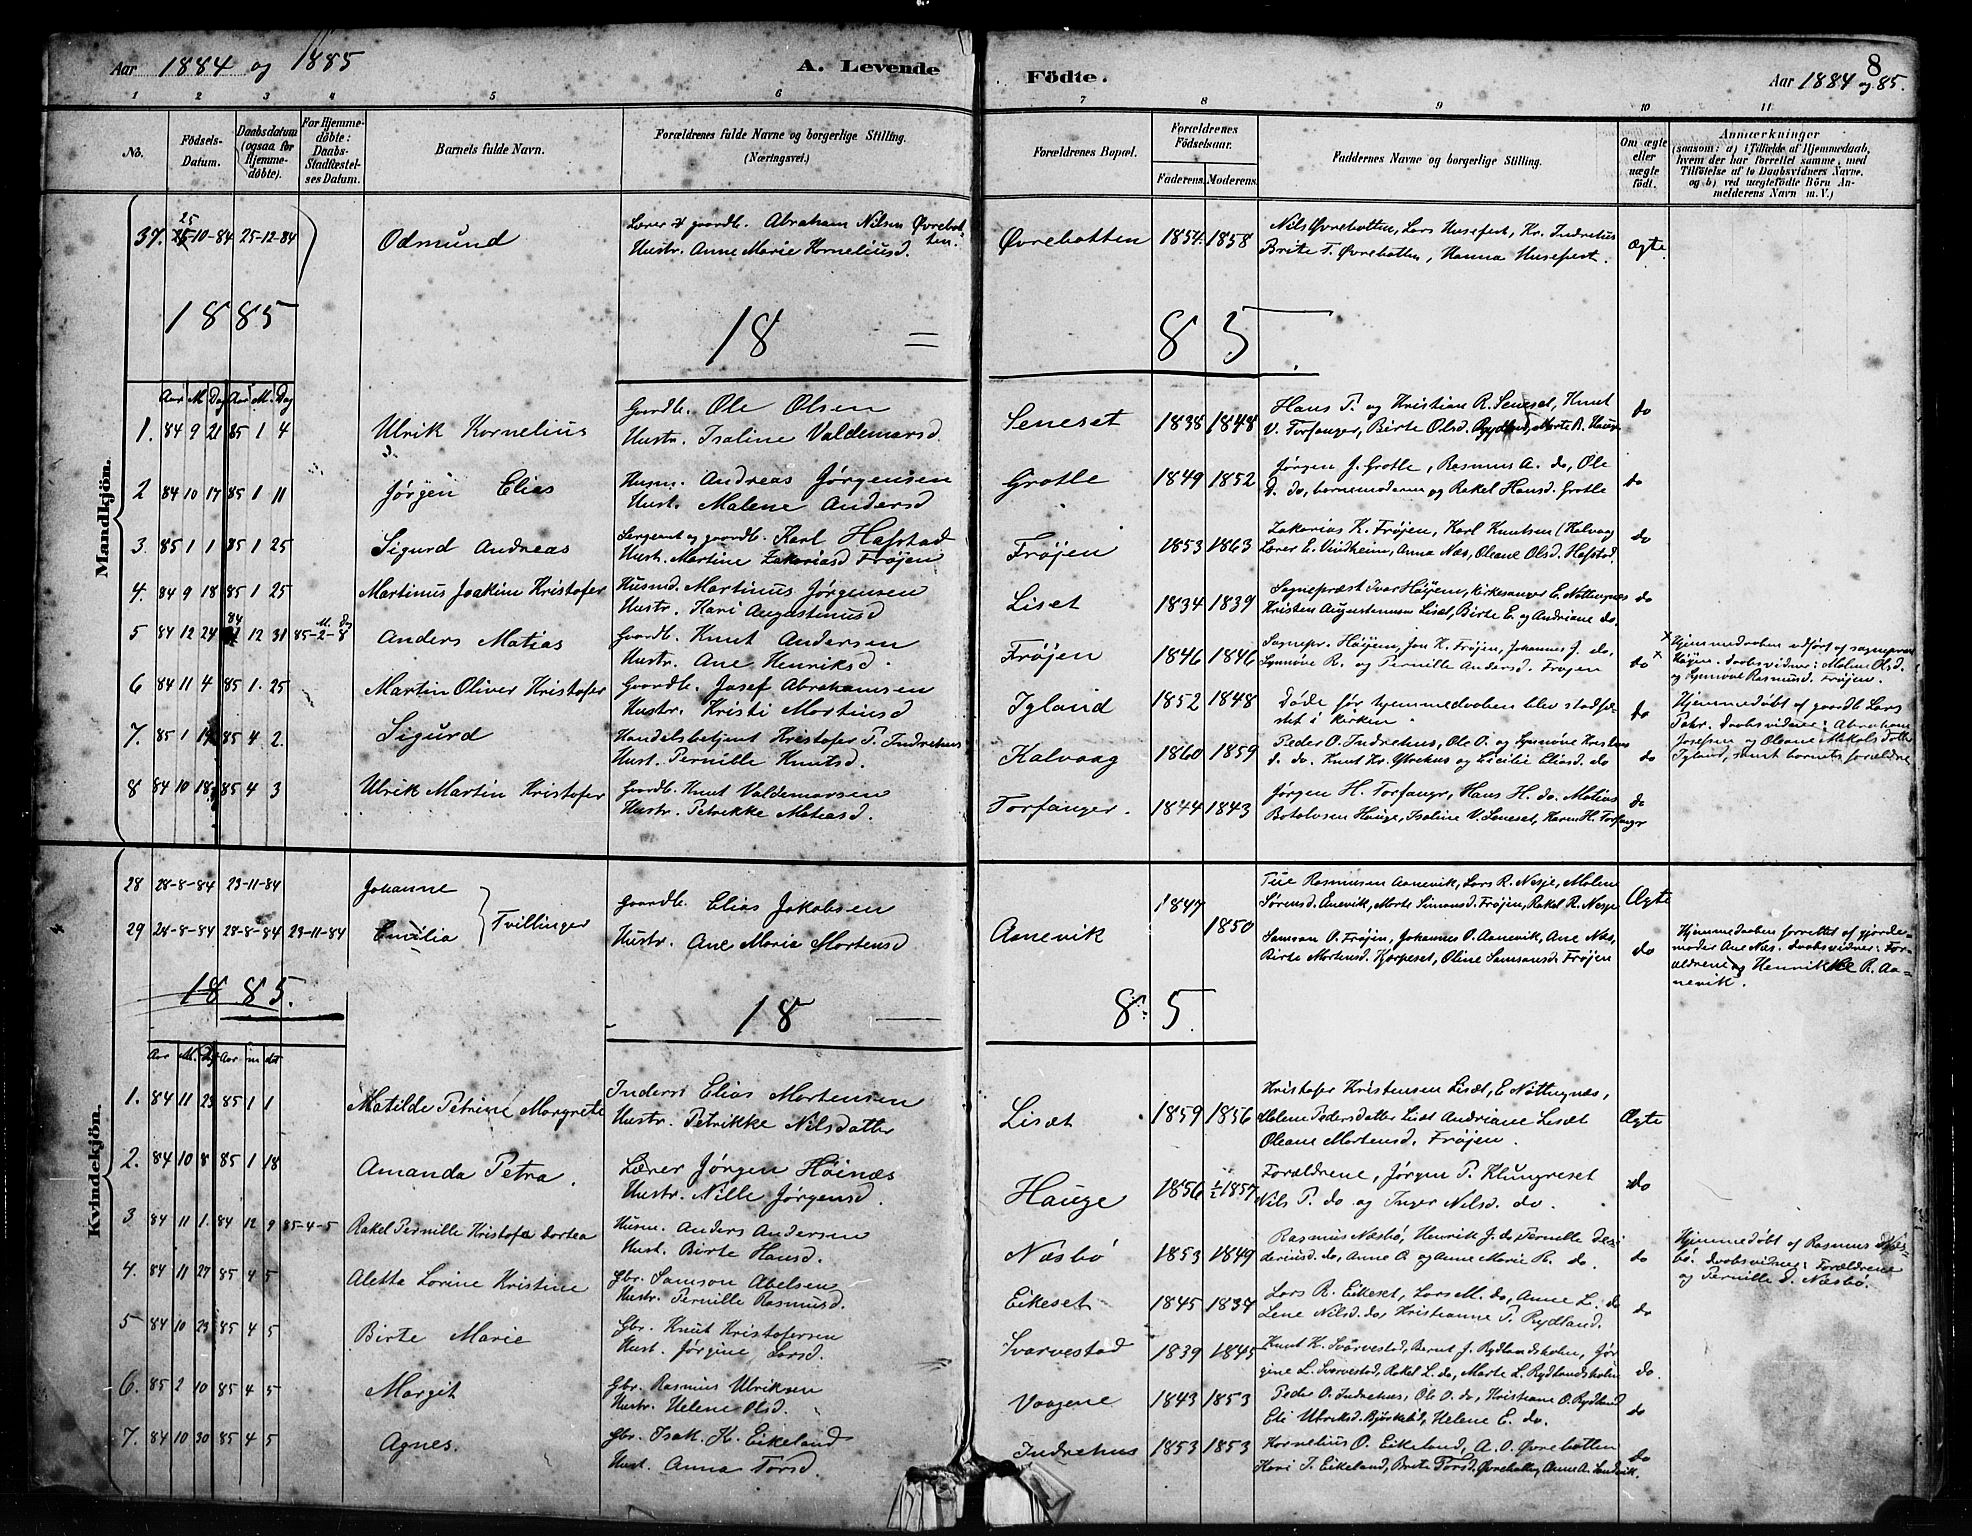 Aar 1884 og 1885
A. Levende
Födte.
8
Aar 1884 og 85.
1 2 3 4 5 6 7 8 9 10 11
No.
Födsels-
Datum.
Daabsdatum
(ogsaa for
Hjemme-
döbte).
For Hjemme-
döbte:
Daabs-
Stadfæstel-
ses Datum.
Barnets fulde Navn.
Forældrenes fulde Navne og borgerlige Stilling.
(Næringsvei.)
Forældrenes Bopæl.
Forældrenes
Födselsaar.
Faderens. Moderens.
Faddernes Navne og borgerlige Stilling.
Om ægte
eller
uægte
födt.
Anmærkninger
(saasom: a) i Tilfælde af Hjemmedaab,
hvem der har forrettet samme, med
Tilföielse af to Daabsvidners Navne,
og b) ved uægtefödte Börn An-
melderens Navn m. V.)
Mandkjön.
37. 25-10-84 25-12-84 Odmund
Lærer & gaardb. Abraham Nilsen Øvrebot-
ten.
Hustr. Anne Marie Korneliusd.
Øvrebotten 1854. 1858
Nils Øvrebotten, Lars Husefest, Kr. Indrehus
Brite T. Øvrebotten, Hanna Husefest.
Ægte
1885
18 = 85
Aar M Dag Aar M. Dag
1. 84 9 21 85 1 4 Ulrik Kornelius
Gaardb. Ole Olsen
Hustr. Isaline Valdemarsd
Seneset 1838 1848
Hans P. og Kristiane R. Seneset, Knut
V. Torfanger, Birte Olsd. Rydland, Marte B. Hauge
do
2 84 10 17 85 1 11 Jørgen Elias
Husm. Andreas Jørgensen
Hust. Malene Andersd
Grotle 1849 1852
Jørgen J. Grotle, Rasmus A. do, Ole
D. do, barnemoderen og Rakel Hansd. Grotle
do
3 85 1 1 85 1 25 Sigurd Andreas
Sergeant og gaardb. Karl Hafstad
Hust. Martine Zakariasd Frøjen
Frøjen 1853 1863
Zakarias K. Frøjen, Karl Knutsen (Kalvaag
Lærer E. Vindheim, Anna Næs, Oleane Olsd. Hafstad.
do
4. 84 9 18 85 1 25 Martinus Joakim Kristofer
Husmd. Martinus Jørgensen
Hustr. Kari Augustinusd
Liset 1834 1839
Sognepræst Ivar Höyem, kirkesanger E. Nøttingnæs
Kristen Augustinusen Liset, Birte E. og Andriane do.
do
5 84 12 24 84 12 31 85-2-8 Anders Matias
Gaardb. Knut Andersen
Hustr. Ane Henriksd.
Frøjen 1846 1846
Sognepr. Höyem, Jon K. Frøjen, Johannes J. do.
Lynnøve R. og Pernille Andersd. Frøjen
do
Hjemmedaaben udført af sognepræst
Höyem. daabsvidner: Malene Olsd.
og Lynnøve Rasmusd. Frøjen.
6 84 11 4 85 1. 25 Martin Oliver Kristofer
Gaardb. Josef Abrahamsen
Hustr. Kristi Martinusd
Igland 1852 1848
Døde før hjemmedaaben blev stadfæ-
stet i kirken.
do
Hjemmedøbt af gaardb Lars
Pedr. daabsvidner: Abraham
Josefsen og Oleane Nikolsdotter
Igland, samt barnets forældre
7. 85 1 14 85 4 2. Sigurd
Handelsbetjent Kristofer P. Indrehus
Hust. Pernille Knutsd.
Kalvaag 1860 1859
Peder O. Indrehus, Ole O. og Lynnøve Kristens
d. do. Knut Kr. Ytrehus og Cicilie Eliasd. do
do
8 84 10 18 85 4 3 Ulrik Martin Kristofer
Gaardb. Knut Valdemarsen
Hustr. Petrikke Matiasd.
Torfanger. 1844 1843
Jørgen H. Torfangr, Hans H. do. Matias
Botolvsen Hauge, Isaline V. Seneset, Karen H. Torfangr
do
Kvindekjön.
28 28-8-84 23-11-84 Johanne
29 28-8-84 28-8-84 23-11-84 Emilia
Tvillinger
Gaardb. Elias Jakobsen
Hustr. Ane Marie Mortensd
Aanevik 1847 1850
Tue Rasmusen Aanevik, Lars R. Nesje, Malene
Sörensd. Anevik, Marte Simonsd. Frøjen, Rakel R. Nesje
Ægte
Samson O. Frøjen, Johannes O. Aanevik, Ane Næs,
Birte Mortensd. Karpeset, Oline Samsonsd. Frøjen
do
Hjemmedaaben forrettet af gjorde-
moder Ane Næs. daabsvidner: For-
ældrene og Henrikke R. Aa-
nevik.
1885.
18 85.
Aar M. Dag Aar m dat
1. 84 11 23 85 1 1 Matilde Petrine Margrete
Inderst Elias Mortensen
Hustr. Petrikke Nilsdatter
Liset 1859 1856
Kristofer Kristensen Liset, E. Nøttingnæs,
Helene Pedersdatter Liset Andriane Liset
Oleane Mortensd. Frøjen.
Ægte
2. 84 10 8 85 1 18 Amanda Petra.
Lærer Jørgen Höinæs
Hustr. Nille Jørgensd.
Hauge 1856 1/2 1857
Forældrene, Jørgen P. Klungreset
Nils P. do og Inger Nilsd. do.
do
3 84 11 1. 84 12 9 85-4-5 Rakel Pernille Kristofa dortea
Husm. Anders Andersen
Hust. Birte Hansd.
Næsbø 1853 1849
Rasmus Næsbø, Henrik J. do, Pernille Desi
deriusd. do, Anne O. og Anne Marie R. do.
do
Hjemmedøbt af Rasmus Næs-
bø. daabsvidner: Forældrene
og Pernille D. Næsbø.
4. 84 11 27 85 4 5 Aletta Lorine Kristine
Gbr. Samson Abelsen
Hustr. Pernille Rasmusd.
Eikeset 1845 1834
Lars R. Eikeset, Lars M. do, Anne L. do
Lene Nilsd. do, Kristianne P. Rydland.
do
5 84 10 23 85 4 5 Birte Marie
Gbr. Knut Kristofersen
Hust. Jørgine Larsd.
Svarvestad 1839 1845
Knut K. Svarvestad, Bernt J. Rydlandsholm, Jør
gine L. Svarvestad, Rakel L. do, Marte L. Rydlandsholm
do.
6. 85 2 10 85 4 5 Margit
Gbr. Rasmus Ulriksen
Hustr. Helene Olsd.
Vaagene 1843 1853
Peder O. Indrehus, Ole O. do, Kristiane O. Rydland
Eli Ulriksd. Bjørkelid, Helene E. do.
do
7. 84 10 30 85 4 5 Agnes.
Gbr. Isak K. Eikeland
Hust. Anna Torsd.
Indrehus 1853 1853
Kornelius O. Eikeland, A. O. Øvrebotten
Kari T. Eikeland, Brite Torsd. Øvrebotten, Anne A. Sandvik.
do